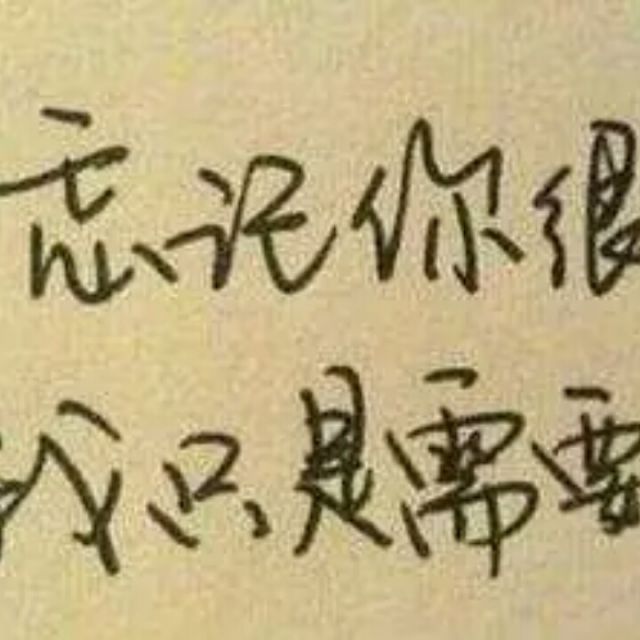 忘记你很
我只是需要